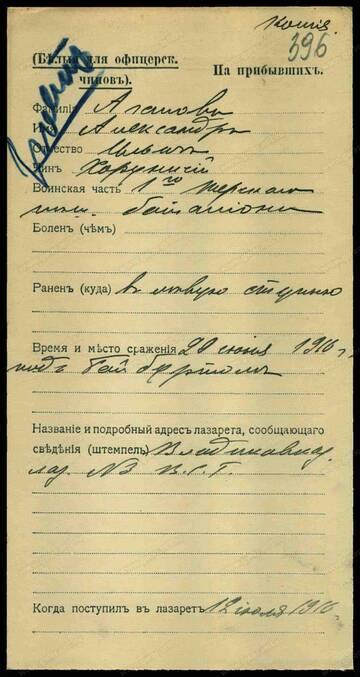 копія.
396
(Бѣлый для офицерск.
чиновъ).
На прибывшихъ.
Фамилія Агаповъ
Имя Александръ
Отчество Ильичъ
Чинъ Хорунжій
Воинская часть 1го Терскаго
пласт. баталіона
Боленъ (чѣмъ)
Раненъ (куда) въ лѣвую ступню
Время и мѣсто сраженія 20 іюня 1916 г.
подъ Байбуртомъ
Названіе и подробный адресъ лазарета, сообщающаго
свѣдѣнія (штемпель) Владикавказ.
лаз. № В.С.Г.
Когда поступилъ въ лазаретъ 12 іюля 1916